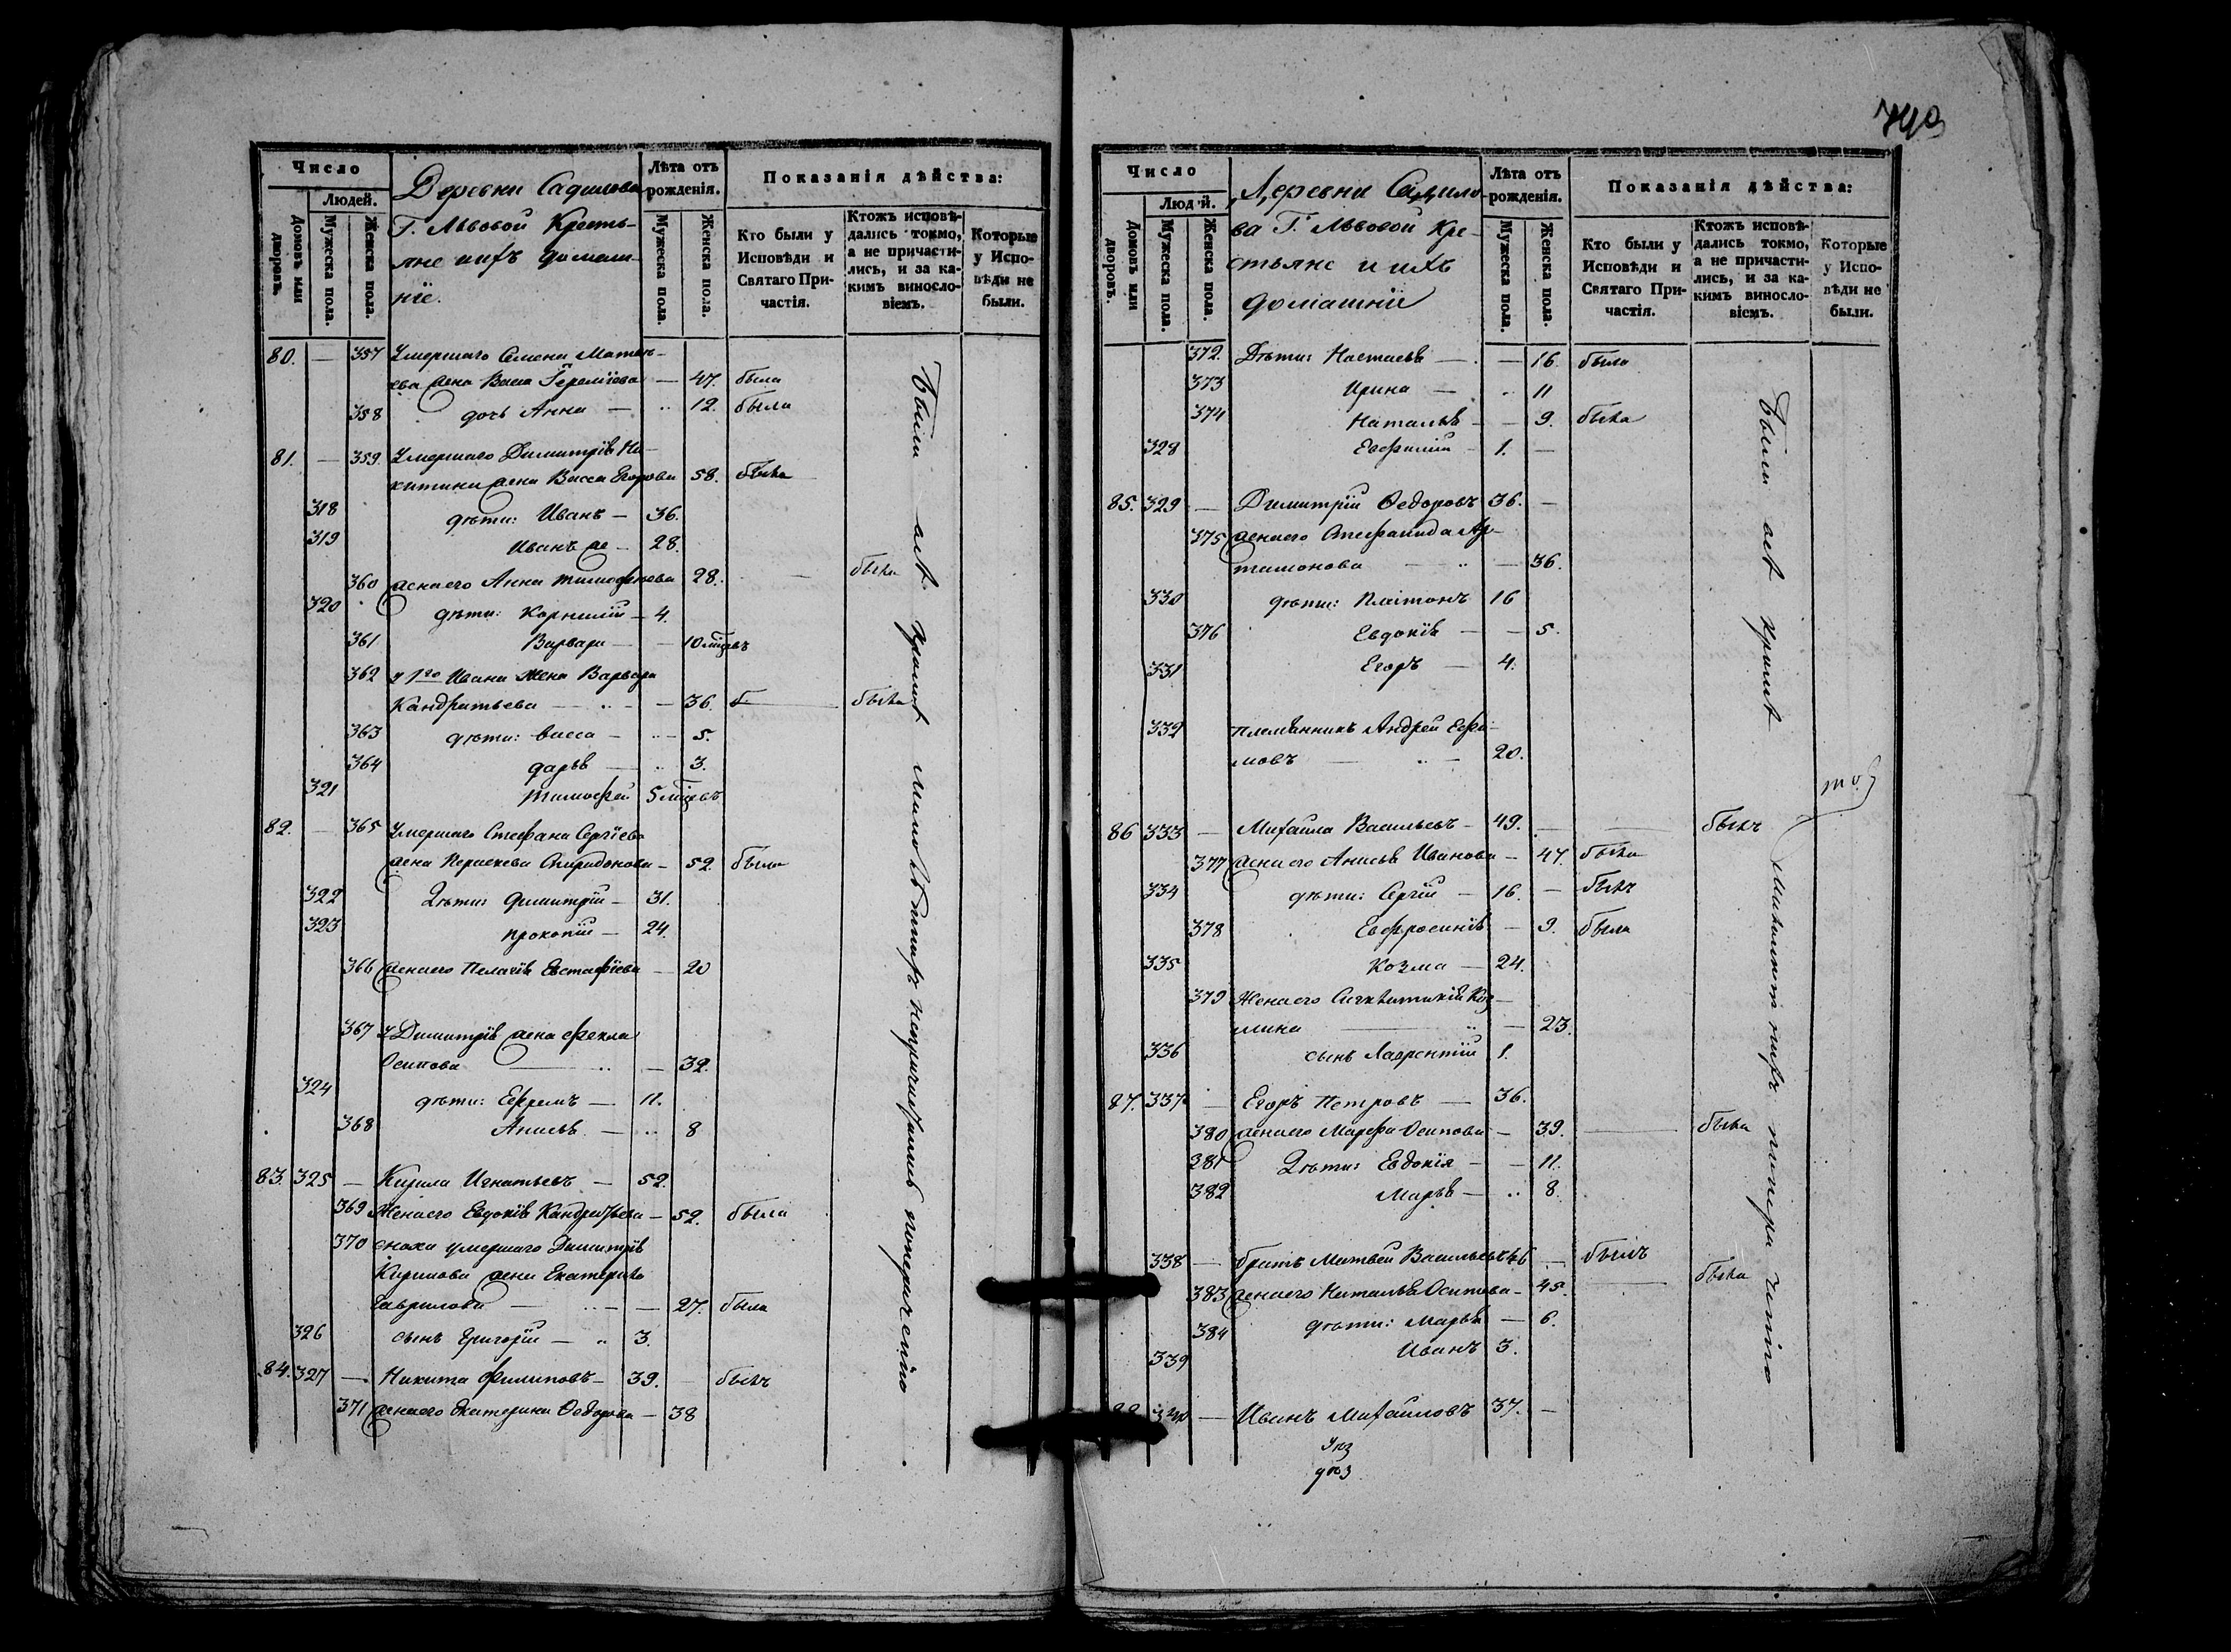 Число
Людей.
Домовъ или дворовъ.
Мужеска пола.
Женска пола.
Деревни Садилова
Г. Львовой Кресть-
яне ихъ домаш-
ніе.
Лѣта отъ рожденія.
Мужеска пола.
Женска пола.
Показанія дѣйства:
Кто были у Исповѣди и Святаго Причастія.
Ктожъ исповѣдались токмо, а не причастились, и за какимъ винословіемъ.
Которые у Исповѣди не были.
80. — 357 Умершаго Семена Матвѣ-
ева жена Васса — 47. была
358 дочь Анна — 12. была
81. — 359. Умершаго Димитрія Ни-
китина жена Васса Егорова 58. была
318 дѣти: Иванъ — 36.
319 Иванъ же — 28.
360 жена его Анна Тимофѣева 28. — была
320 дѣти: Корнилій — 4.
361 Варвара — 10 мцевъ
362 у 1го Ивана жена Варвара
Кандратьева — 36. была
363 дѣти: Васса — 5.
364 Дарья — 3.
321 Тимофей 5 мцевъ
82. — 365 Умершаго Стефана Сергіева
жена Параскева Спиридонова — 52. была
322 Дѣти: Димитрій — 31.
323 Прокопій — 24.
366 жена его Пелагія Евстафіева — 20
367 у Димитрія жена Фекла
Осипова — 32.
324 дѣти: Ефремъ — 11.
368 Анисья — 8
83. 325 — Кирила Игнатьевъ — 52.
369 Жена его Евдокія Кандратьева — 52. была
370 сноха умершаго Димитрія
Кирилова жена Екатерина
Гаврилова — 27. была
326 сынъ Григорій — 3.
84. 327 — Никита Филиповъ — 39. — былъ
371 жена его Екатерина Ѳедорова — 38
Были
Число
Людей.
Домовъ или дворовъ.
Мужеска пола.
Женска пола.
Деревни Садило-
ва Г. Львовой Кре-
стьяне и ихъ
домашніи
Лѣта отъ рожденія.
Мужеска пола.
Женска пола.
Показанія дѣйства:
Кто были у Исповѣди и Святаго Причастія.
Ктожъ исповѣдались токмо, а не причастились, и за какимъ винословіемъ.
Которые у Исповѣди не были.
372. Дѣти: Настасья — 16. была
373 Ирина — 11
374 Наталья — 9. была
328 Евфимій — 1. —
85. 329 — Димитрій Ѳедоровъ 36. —
375 жена его Степанида Ар-
тамонова — 36.
330 дѣти: Платонъ 16
376 Евдокія — 5.
331 Егоръ — 4.
332 племянникъ Андрей Ефи-
мовъ — 20.
86 333 — Михайла Васильевъ — 49. — былъ
377 жена его Анисья Иванова — 47. была
334 дѣти: Сергій — 16. — былъ
378 Евфросинія — 9. была
335 Козма — 24.
379 Жена его Коз-
мина — 23.
336 сынъ Лаврентій 1.
87. 337 — Егоръ Петровъ — 36.
380 жена его Марфа Осипова — 39. — была
381 Дѣти: Евдокія — 11.
382 Марья — 8.
338 — братъ Матвей Васильевъ 46 — былъ
383 жена его Наталья Осипова — 45. — была
384 дѣти: Марья — 6.
339 Иванъ 3.
88 340 — Иванъ Михайловъ 37. —
Были